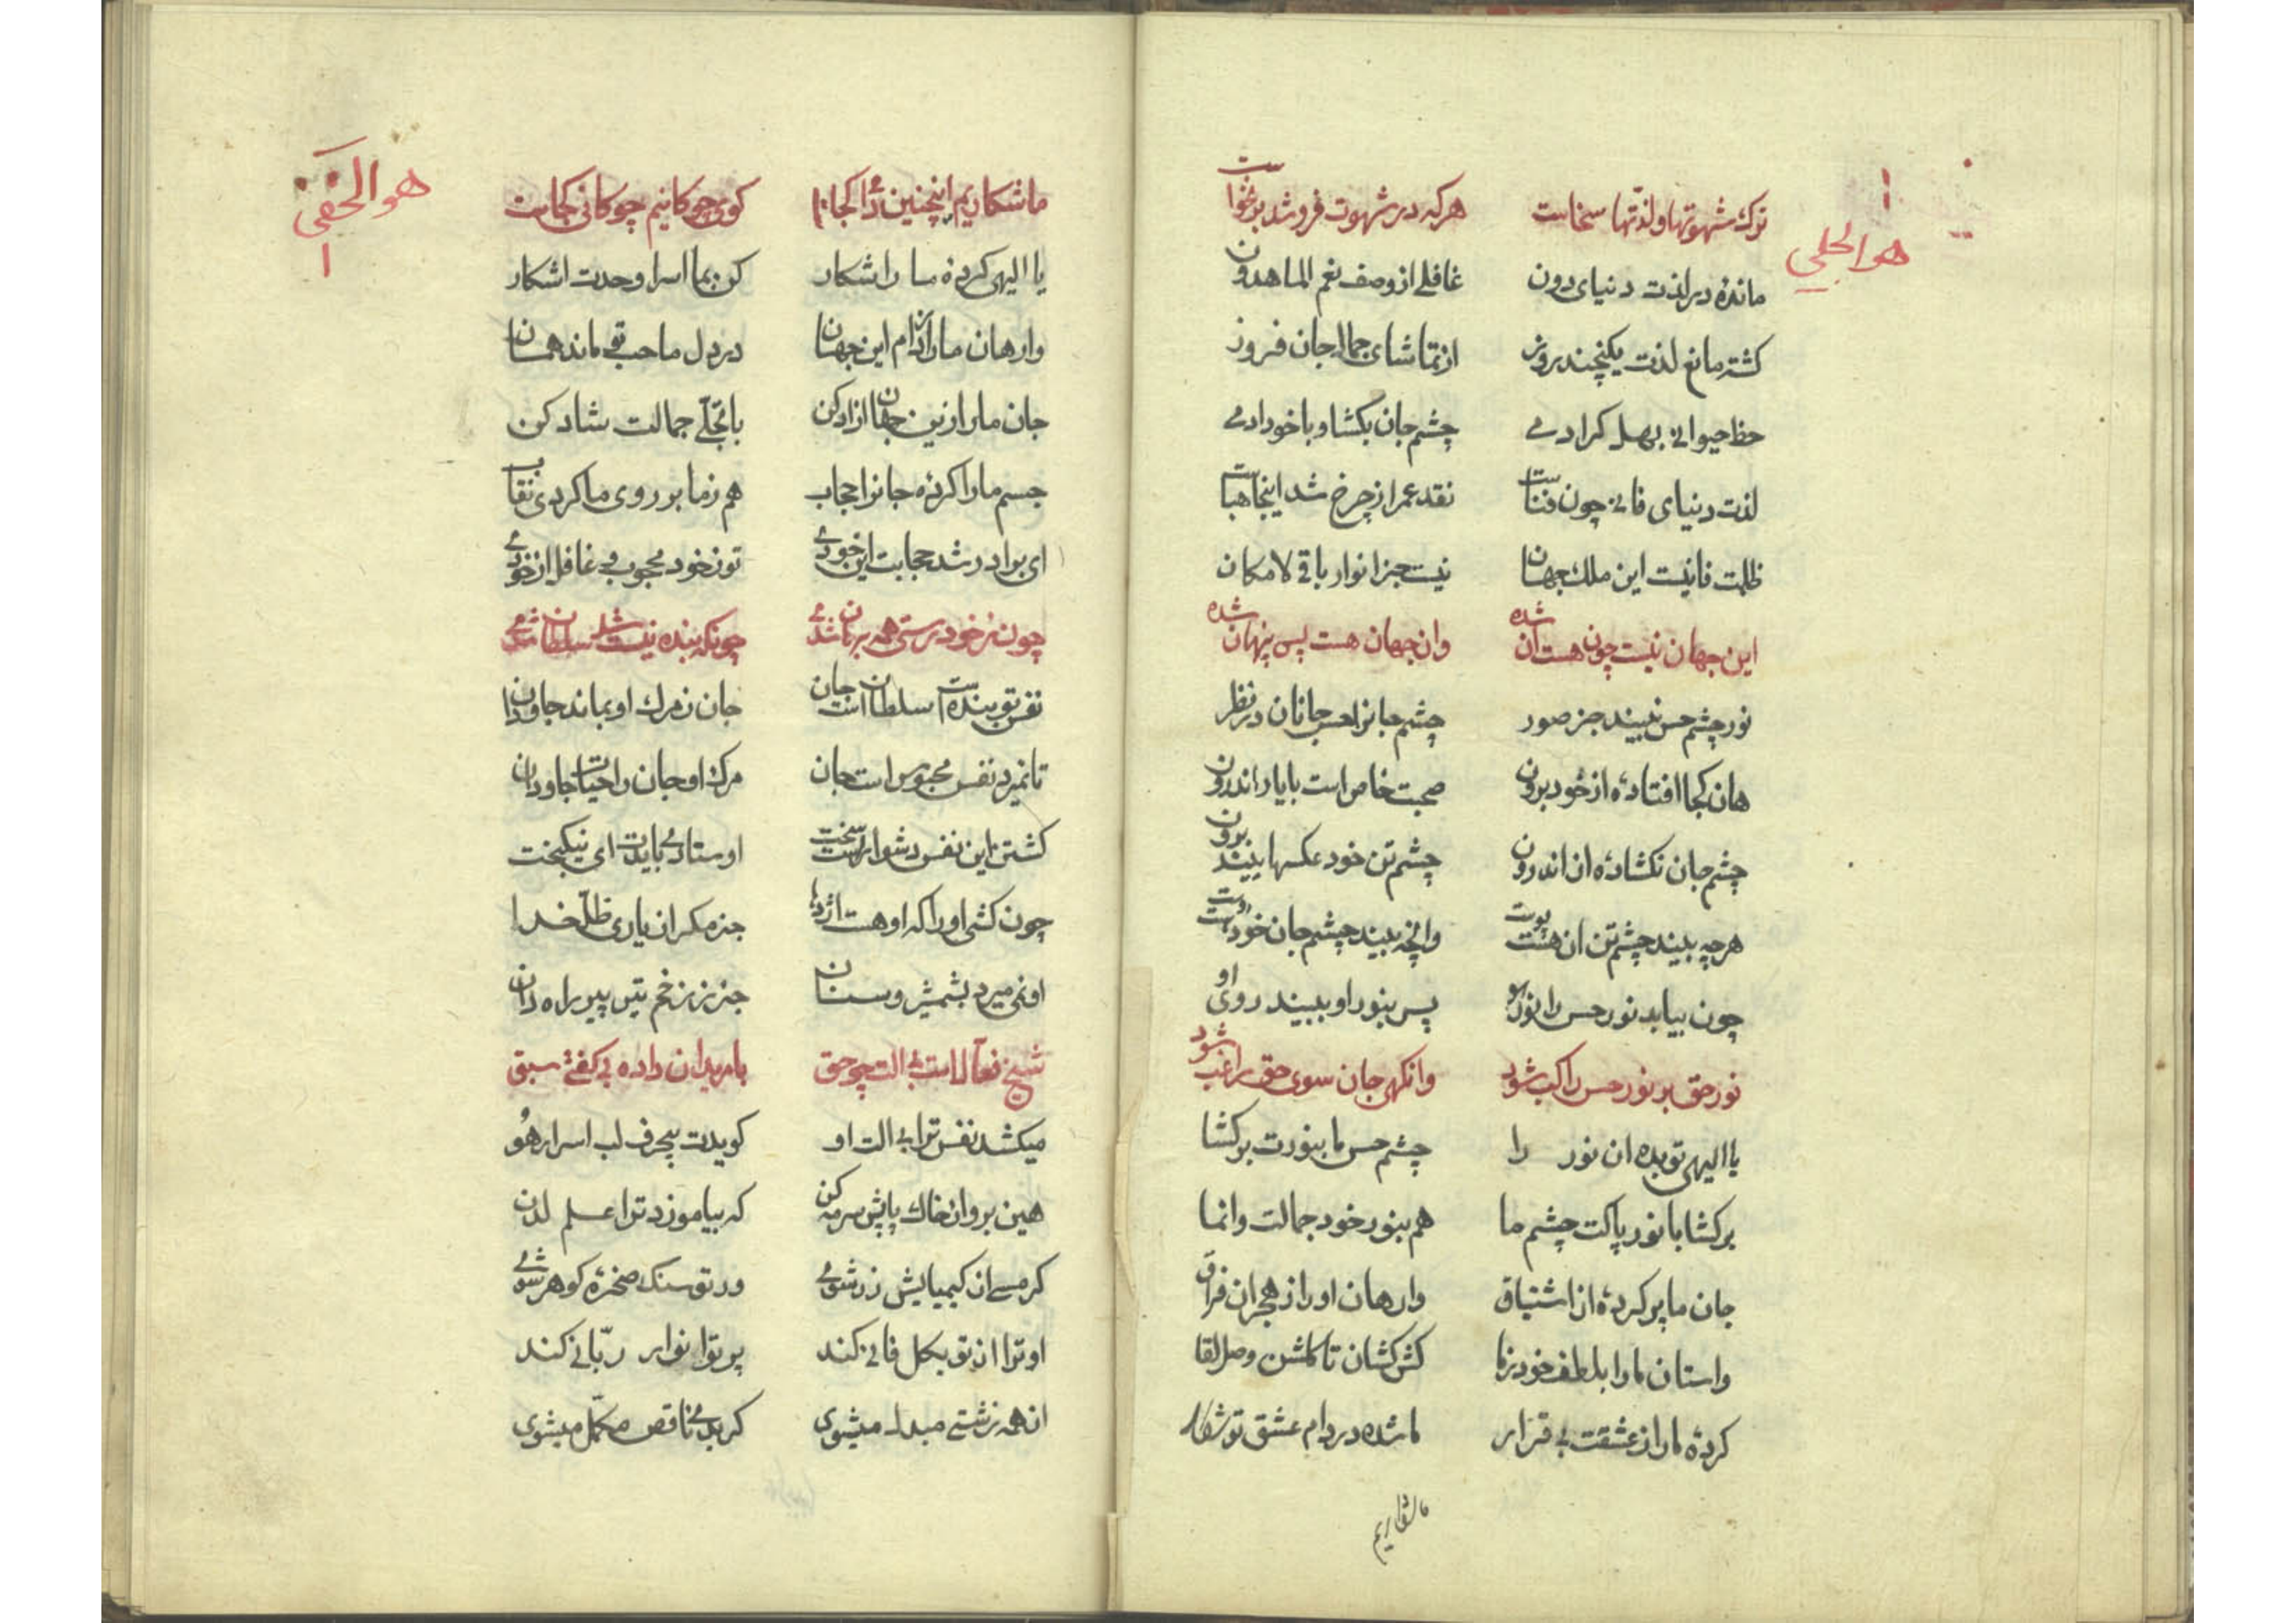 هو الجلي
ترك شهوتها ولذتها سخاست هركه در شهوت فروشد برنخواست
مانده در لذت دنیای دون غافلی از وصف نعم الماهدون
کشته مانع لذت یکپنجند روز از تماشای جمال جان فروز
حظ حیوانی بهل کر ادمی چشم جان بکشا و با خود ادمی
لذت دنیای فانی چون فناست نقد عمر از چرخ شد اینجا هباست
ظلمت فانیست این ملك جهان نیست جز انوار باقی لامکان
این جهان نیست چون هستان شده وان جهان هست پس پنهان شده
نور چشم حس نبیند جز صور چشم جانرا حسن جانان در نظر
هان کجا افتادۀ از خود برون صحبت خاص است با یار اندرون
چشم جان نکشادۀ از اندرون چشم تن خود عکسها بیند برون
هرچه بیند چشم تن ان هست پوست وانچه بیند چشم جان خود دوست
چون بیابد نور حس را نور هو پس بنور او ببیند روی او
نور حق بر نور حس راکب شود وانکهی جان سوی حق راغب شود
یا الهی تو بده ان نور را چشم حس ما بنورت برکشا
برکشا با نور پاکت چشم ما هم بنور خود جمالت وانما
جان ما پر کردۀ از اشتیاق وارهان او را ز هجران فراق
واستان ما را بلطف خود ز ما کش کشان تا کلشن وصل لقا
کردۀ ما را ز عشقت بی قرار ما شده در دام عشق تو شکار
ما شکاریم
هو الحفی
ما شکاریم اینچنین دامی کراست کوی چوکانیم چوکانی کجاست
یا الهی کردۀ ما را شکار کن بما اسرار وحدت اشکار
وارهان ما را از دام این جهان در دل ما حب تو ماند همان
جان ما را زین جهان ازاد کن با تجلی جمالت شاد کن
جسم ما را کردۀ جانرا حجاب هم ز ما بر روی ما کردی نقاب
ای برادر شد حجابت این خودی تو ز خود محجوب و غافل از خودی
چون ز خود رستی همه برهان شدی چونکه بنده نیست شد سلطان شدی
نفس تو بنده است سلطان است جان جان ز مرك او بماند جاودان
تا نمیرد نفس محبوس است جان مرك او جان را حیات جاودان
کشتن این نفس دشوار است سخت اوستادی بایدت ای نیکبخت
چون کشی او را که او هست اژدها جز مکر ان یاری ظل خدا
او نمی میرد بشمشیر و سنان جز بزخم تیر پیر راه دان
شیخ فعالست بی الت چو حق با مریدان داده بی کفتی سبق
میکشد نفس ترا بی الت او کویدت بیحرف لب اسرار هو
هین برو ان خاك پایش سرمه کن که بیاموزد ترا علم لدن
کر مسی از کیمیایش زر شوی ور تو سنك صخرۀ کوهر شوی
او ترا از تو بکل فانی کند پر تو انوار ربانی کند
از همه زشتی مبدل میشوی کر بدی ناقص مکمل میشوی